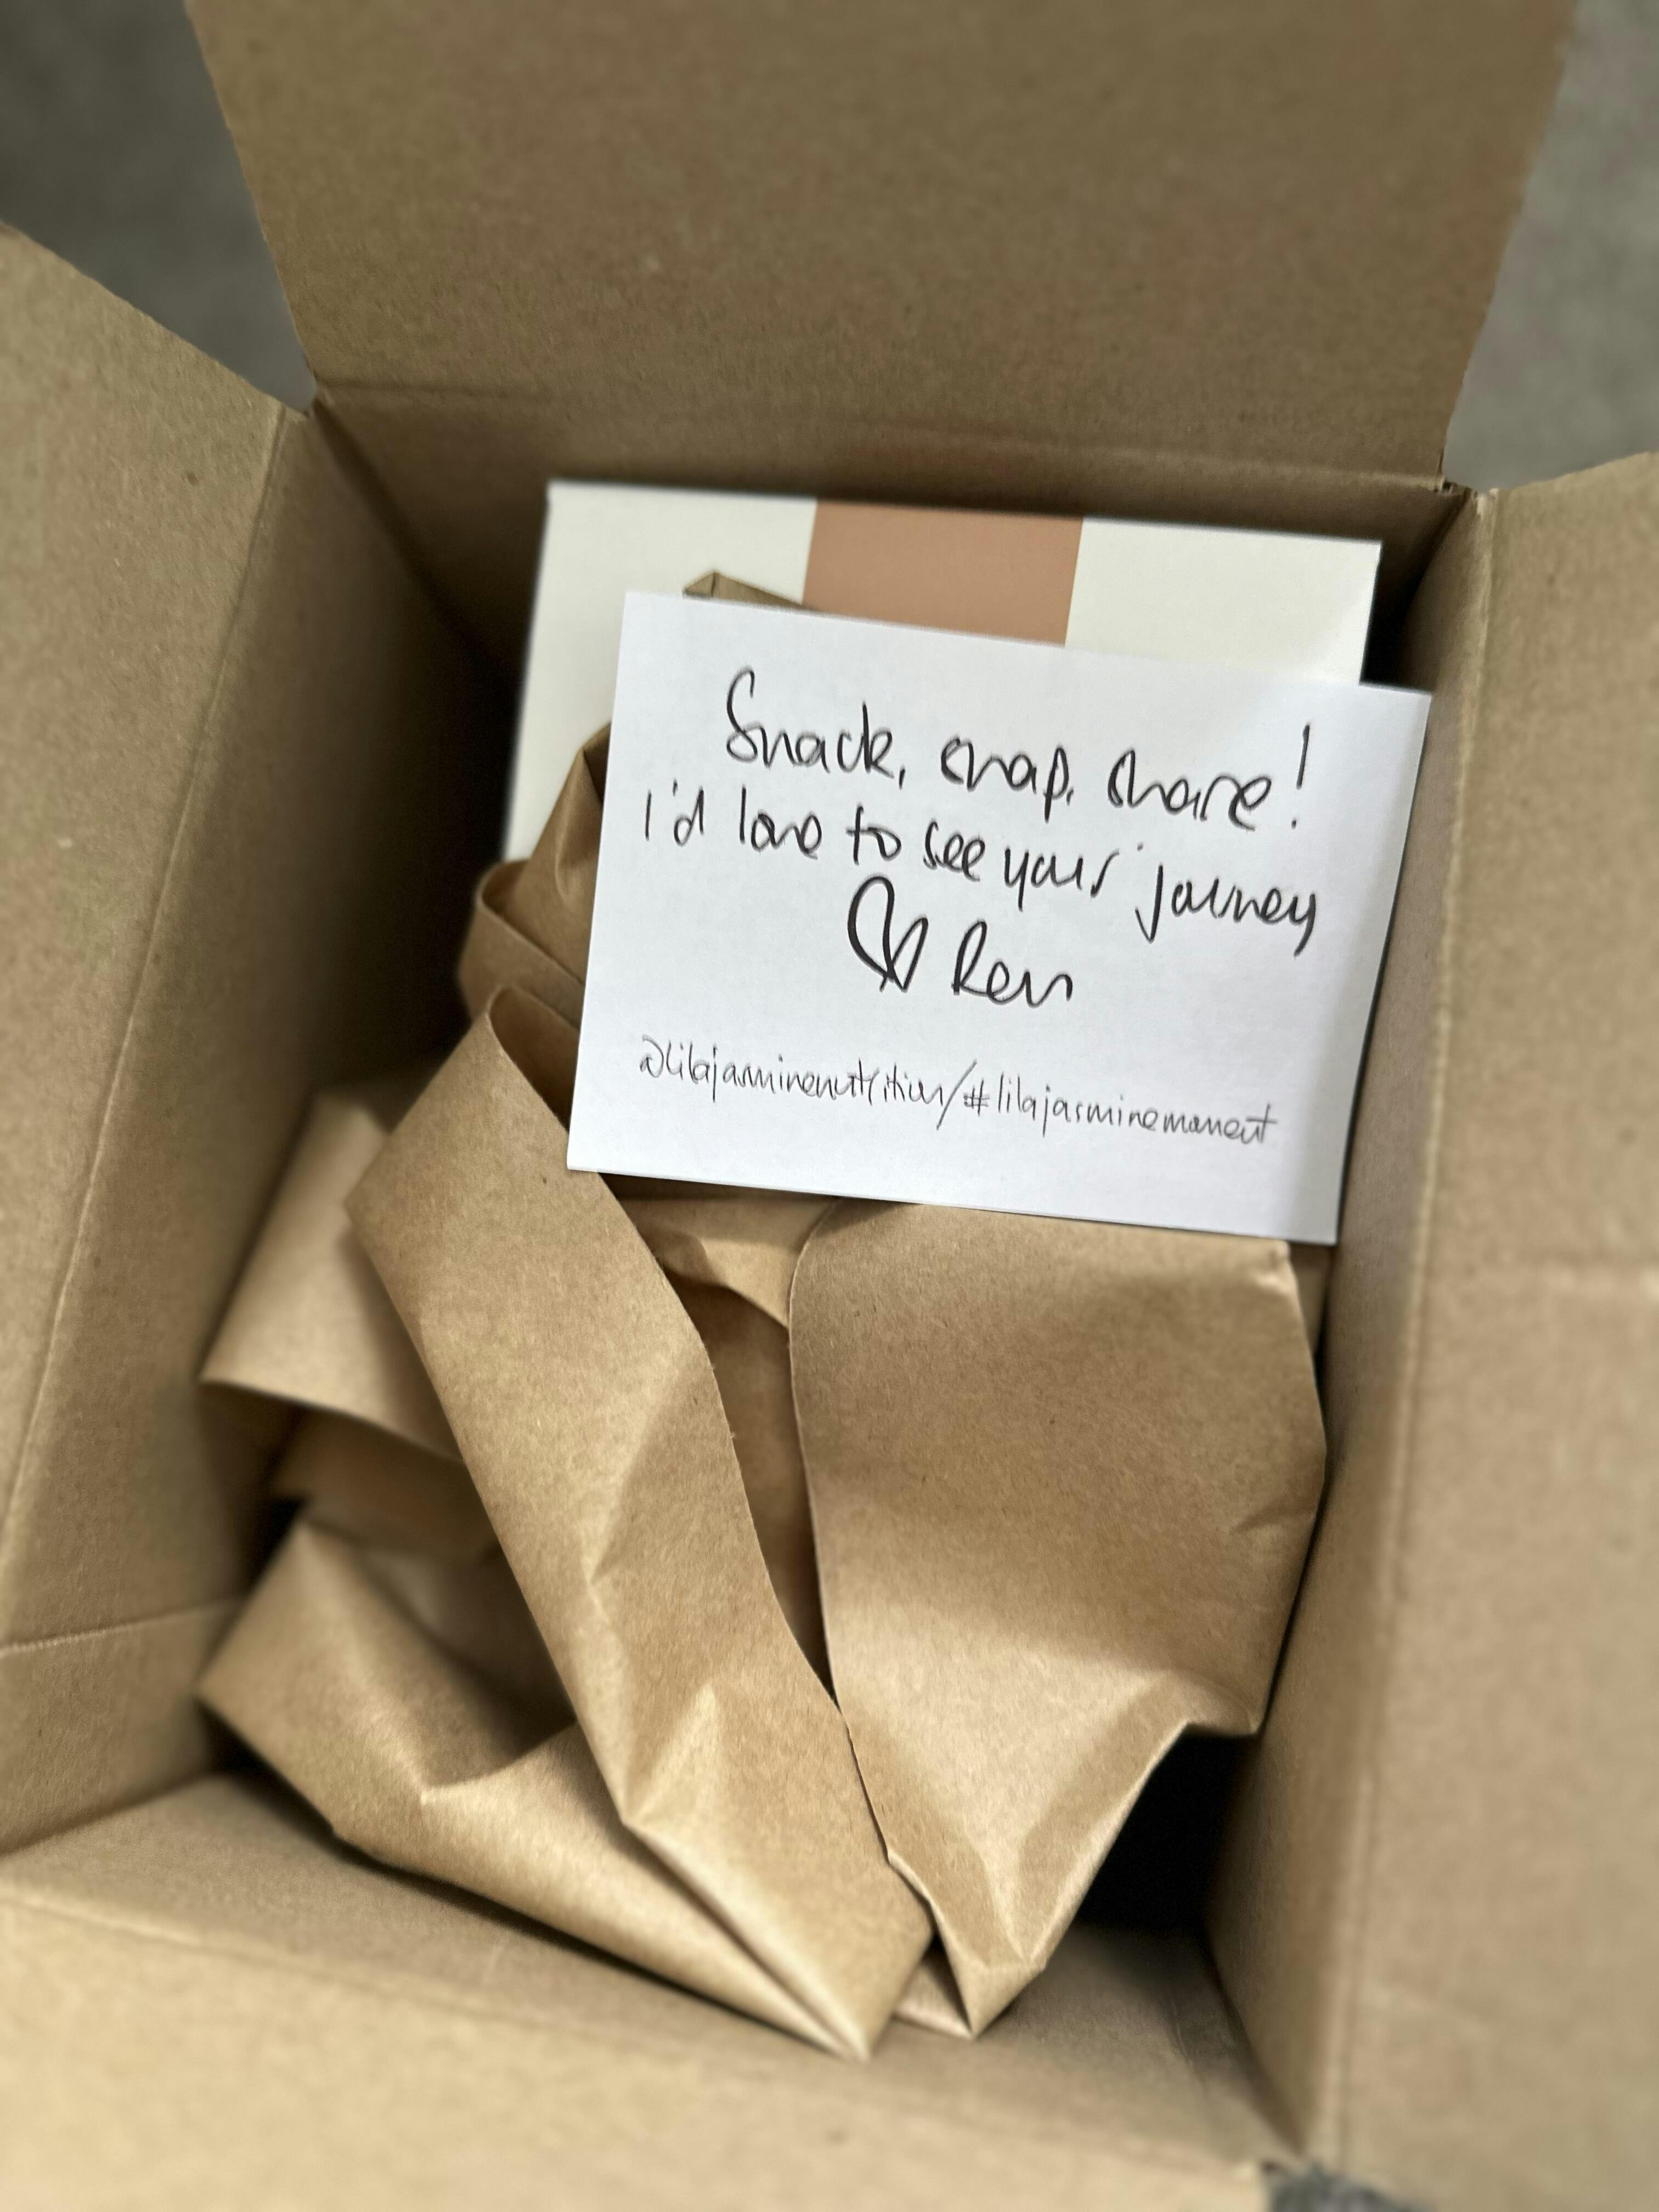 Snack, snap, share!
I'd love to see your journey
♡ Ren
@lilajasminenutrition/#lilajasminemoment